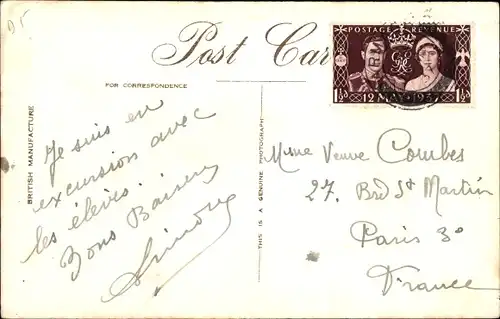 Post Car
FOR CORRESPONDENCE
BRITISH MANUFACTURE
THIS IS A GENUINE PHOTOGRAPH
POSTAGE REVENUE
12 MAY 1937
1½d 1½d
Je suis en
excursion avec
les élèves.
Bons Baisers
Mme Veuve Combes
27. Brd St Martin
Paris 3e
France